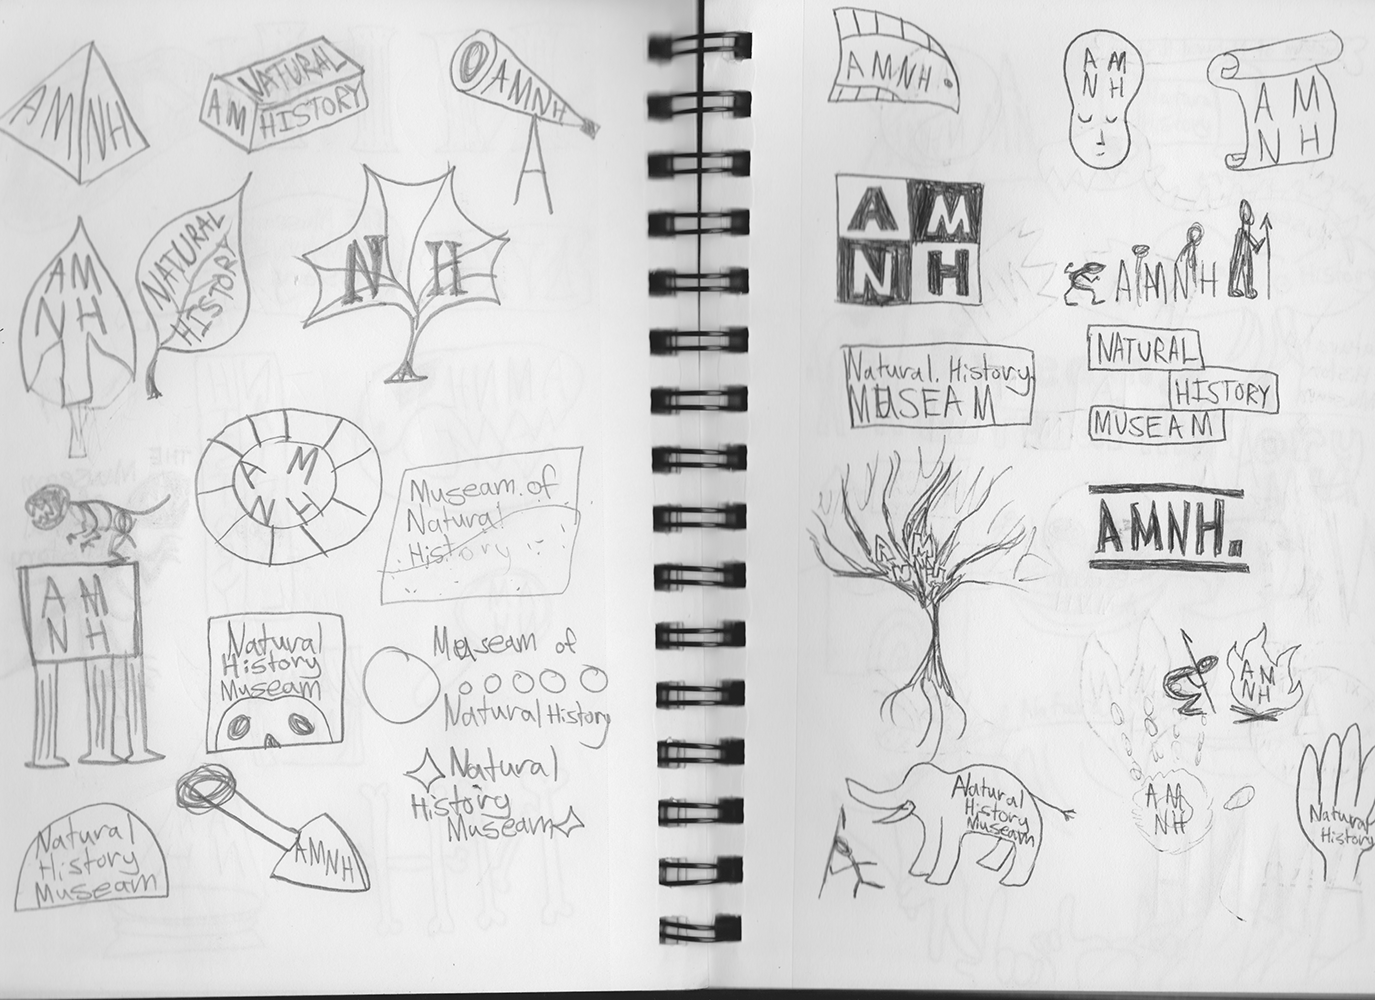 AM NH
NATURAL
AM HISTORY
AMNH
A
AM
NH
NATURAL
HISTORY
N H
A M
N H
Museam. of
Natural
History
A M
N H
Natural
History
Museam
Museam of
Natural History
Natural
History
Museam
Natural
History
Museam
AMNH
AMNH
A M
N H
A M
N H
A M
N H
AMNH
Natural. History
MUSEAM
NATURAL
HISTORY
MUSEAM
AMNH.
A M
N H
AM
NH
Natural
History
Museam
AM
NH
Natural
History